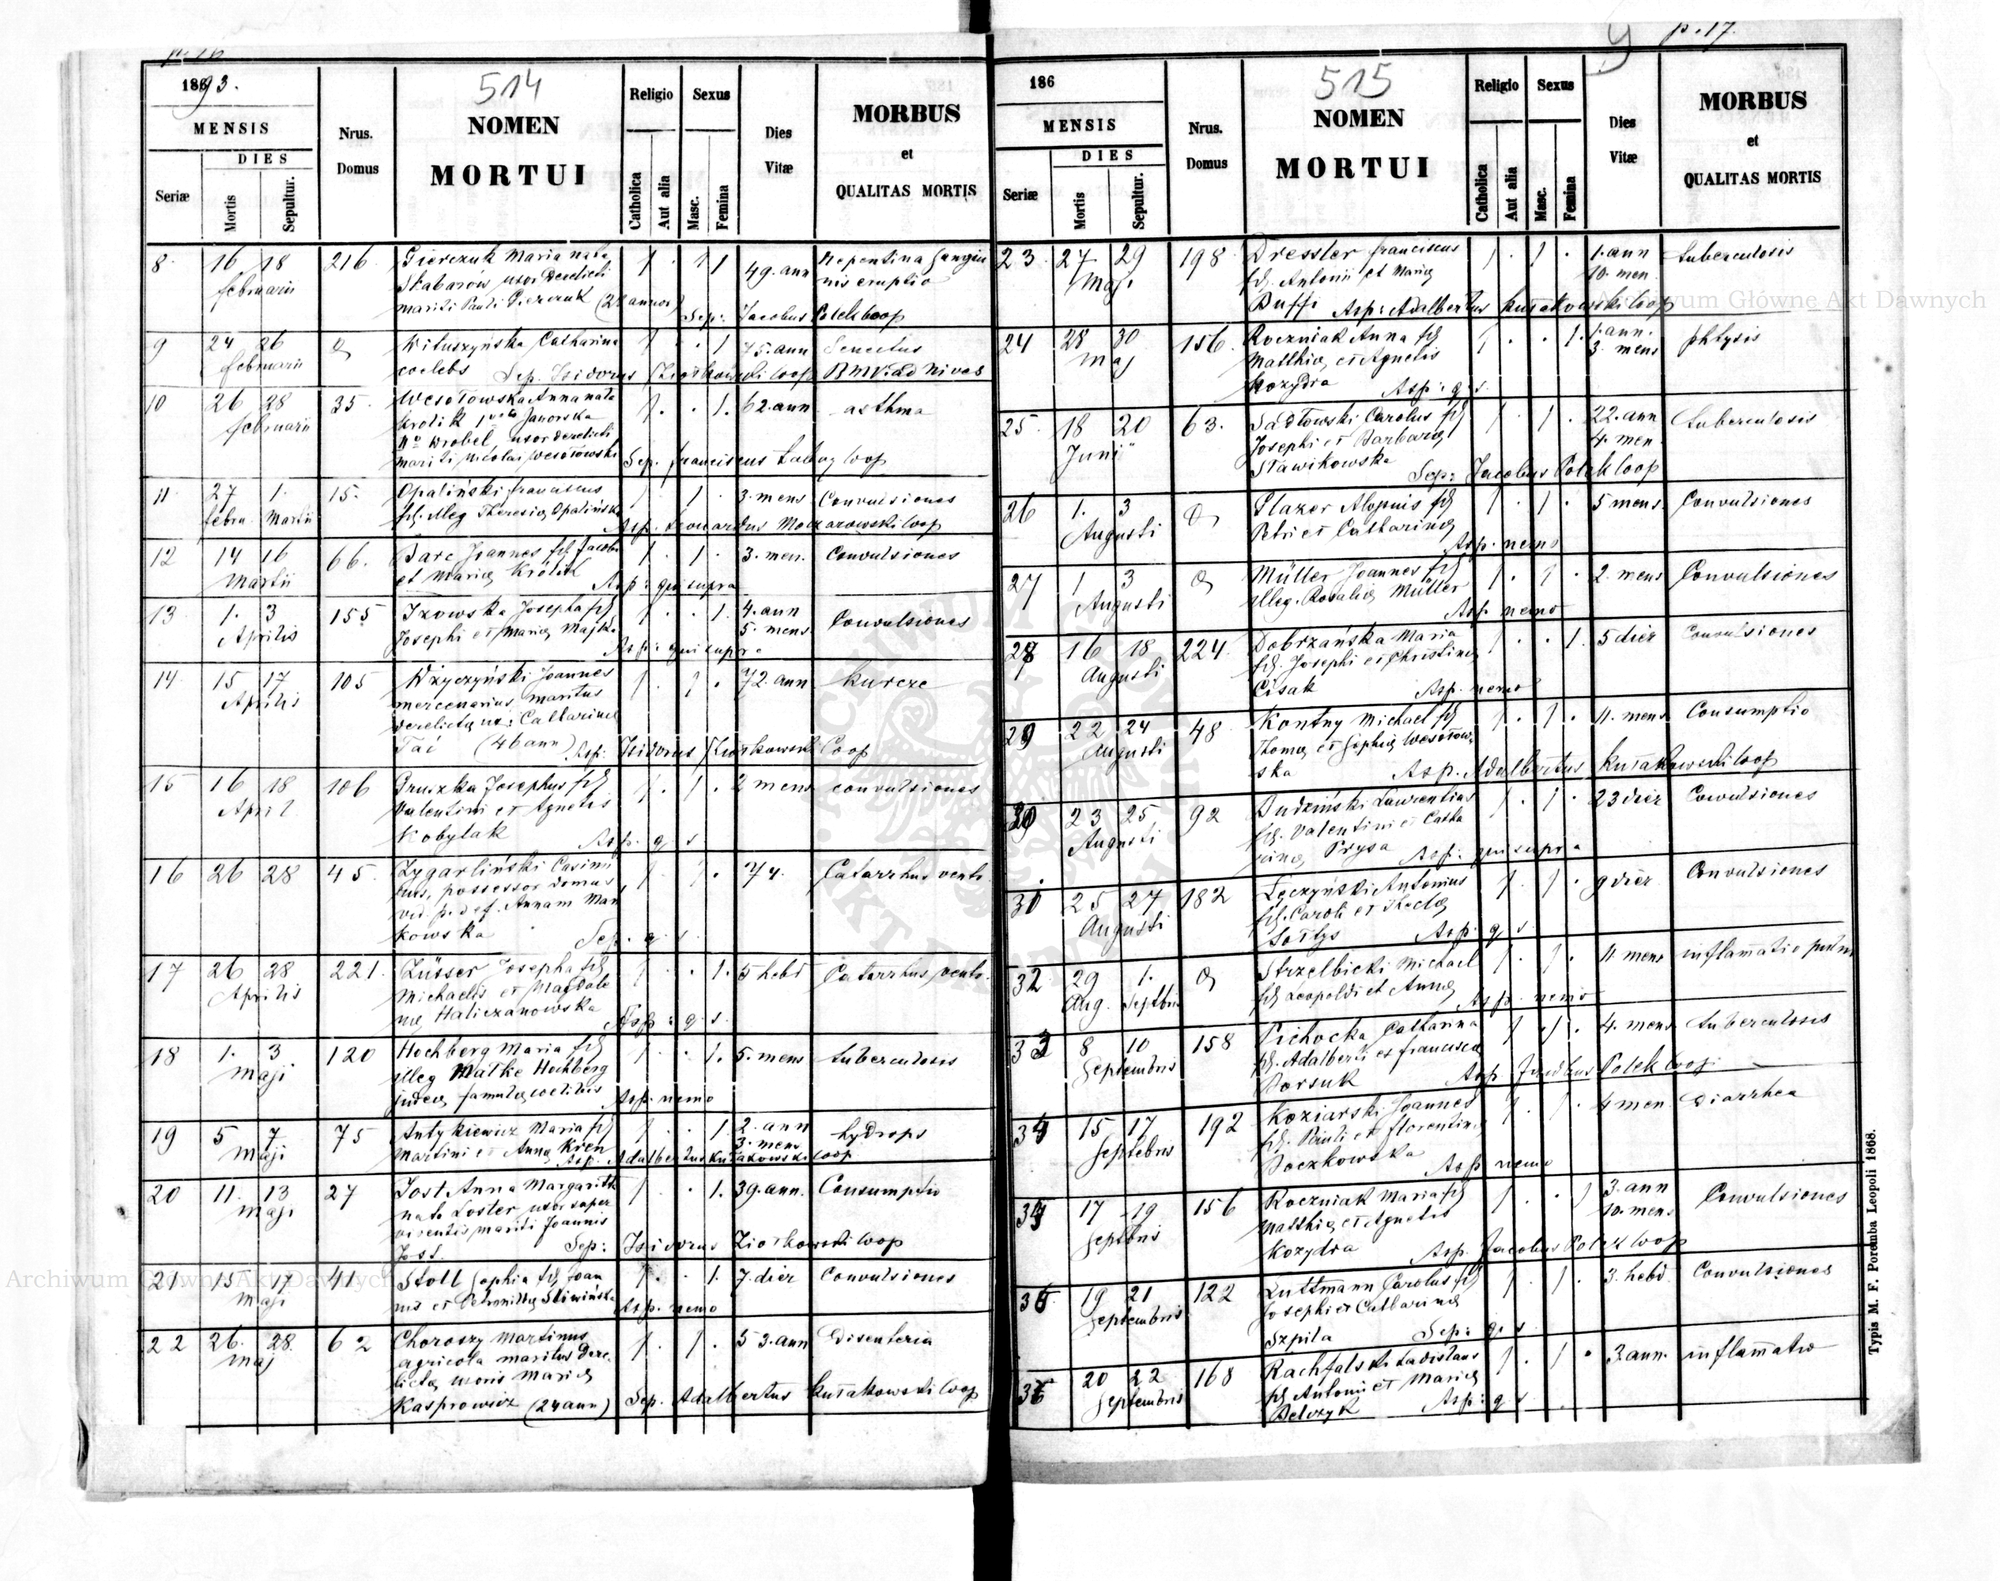 p. 16
1893.
514
MENSIS
DIES
Seriæ
Mortis
Sepultur.
Nrus.
Domus
NOMEN
MORTUI
Religio
Catholica
Aut alia
Sexus
Masc.
Femina
Dies
Vitæ
MORBUS
et
QUALITAS MORTIS
8. 16 18 216. Pierczuk Maria nata 1 . . 1 49. ann Repentina Sangui
februarii Skabarów uxor derelicti nis eruptio
mariti Pauli Pierczuk (28 annor) Sep: Jacobus Polek Coop
9 24 26 Wituszyńska Catharina 1 . . 1 75. ann Senectus
februarii coelebs Sep. Isidorus Ziorkowski Coop BMV. ad Nives
10 26 28 35. Wesołowska Anna nata 1 . . 1. 62. ann asthma
februarii Krolik 1º voto Janorska
IIº Wrobel uxor derelicti
mariti Nicolai Wesołowski Sep. Franciscus Coop
11. 27 1. 15. Opaliński Franciscus 1 . 1 . 3. mens Convulsiones
febru. Martii fil. illeg Theresiæ Opalińska Asp. Leonardus Coop
12 14 16 66. Joannes fil Jacobi 1 . 1 . 3. men. Convulsiones
Martii et Mariæ Królik Asp: qui supra
13. 1. 3 155 Izowska Josepha fil 1 . . 1. 4. ann Convulsiones
Aprilis Josephi et Mariæ Majka 5. mens
Asp: qui supra
14. 15 17 105 Krzyczyński Joannes 1 . 1 . 72. ann kurcze
Aprilis mercenarius, maritus
derelictæ ux: Catharinæ
Tai (46 ann) Asp: Isidorus Ziorkowski Coop
15 16 18 106 Pruszka Josephus fil 1 . 1 . 2 mens convulsiones
April Valentini et Agnetis
Kobylak Asp. q s
16 26 28 45. Zygarliński Casimi 1 . 1 . 74. Catarrhus ventr.
rus, possessor domus
vid. p. def. Annam Mań
kowska Sep. q. s.
17 26 28 221. Züsser Josepha fil 1 . . 1. 5 hebd Catarrhus ventr.
Aprilis Michaelis et Magdale
næ Haliczanowska Asp: q: s.
18 1. 3 120 Hochberg Maria fil 1 . . 1. 5. mens tuberculosis
maji illeg Matke Hochberg
judeæ, famulæ coelibis Asp. nemo
19 5 7 75 Antykiewicz Maria fil 1 . . 1. 2. ann hydrops
maji Martini et Annæ Kren 3. mens
Asp. Adalbertus Kułakowski Coop
20 11. 13 27 Jost Anna Margaritha 1 . . 1. 39. ann. Consumptio
maji nata Loster uxor super
viventis mariti Joannis
Jost. Sep: Isidorus Ziorkowski Coop
21 15 17 41 Stoll Sophia fil Joan 1 . . 1. 7. dier Convulsiones
maji nis et Petronillæ Śliwińska Asp. nemo
22 26. 28. 62 Choroszy Martinus 1 . 1 . 53. ann Disenteria
maj agricola maritus dere
lictæ uxoris Mariæ
Kasprowicz (24 ann) Sep. Adalbertus Kułakowski Coop
9 p. 17.
186
515
MENSIS
DIES
Seriæ
Mortis
Sepultur.
Nrus.
Domus
NOMEN
MORTUI
Religio
Catholica
Aut alia
Sexus
Masc.
Femina
Dies
Vitæ
MORBUS
et
QUALITAS MORTIS
23. 27 29 198 Dressler Franciscus 1 . 1 . 1. ann tuberculosis
Maj. fil. Antonii et Mariæ 10. men.
Buffi Asp: Adalbertus Kułakowski Coop
24 28 30 156 Roczniak Anna fil 1 . . 1. 1. ann. phtysis
maj Matthiæ et Agnetis 3. mens
Kozydra Asp: q: s.
25. 18 20 63. Sadłowski Carolus fil 1 . 1 . 22. ann tuberculosis
Junii Josephi et Barbaræ 4. men.
Sławikowska Sep: Jacobus Polek Coop
26 1. 3 Plazer Aloysius fil 1 . 1 . 5 mens. Convulsiones
Augusti Petri et Catharinæ
Asp. nemo
27 1 3 Müller Joannes fil 1 . 1 . 2. mens Convulsiones
Augusti illeg. Rosaliæ Müller
Asp. nemo
28 16 18 224. Dobrzańska Maria 1 . . 1. 5 dier Convulsiones
Augusti fil. Josephi et Christinæ
Cisak Asp. nemo
29 22 24 48 Kontny Michael fil 1 . 1 . 11. mens Consumptio
Augusti Thomæ et Sophiæ Wesołow
ska Asp. Adalbertus Kułakowski Coop
30 23 25 92 Dudziński Laurentius 1 . 1 . 23 dier Convulsiones
Augusti fil. Valentini et Catha
rinæ Prysa Asp: qui supra
31 25 27 182 Łęczyński Antonius 1 . 1 . 9 dier Convulsiones
Augusti fil. Caroli et Theclæ
Sołtys Asp: q s
32 29 1. Strzelbicki Michael 1 . 1 . 11 mens inflamatio pulm
Aug. Septbr. fil Leopoldi et Annæ Asp. nemo
33 8 10 158 Cichocka Catharina 1 . 1 . 4. mens tuberculosis
Septembris fil. Adalberti et Franciscæ
Borsuk Asp. Jacobus Polek Coop.
34 15 17 192 Koziarski Joannes 1 . 1 . 4 men. Diarrhea
Septebris fil. Pauli et Florentinæ
Boczkowska Asp nemo
35 17 19 156 Roczniak Maria fil 1 . . 1 3. ann Convulsiones
Septbris Matthiæ et Agnetis 10. mens
Kozydra Asp. Jacobus Polek Coop
36. 19 21 122 Luttmann Carolus fil 1 . 1 . 3. hebd. Convulsiones
Septembris Josephi et Catharinæ
Szpila Sep: q. s
36 20 22 168 Rachfalski Ladislaus 1 . 1 . 3. ann. inflamatio
Septembris fil Antonii et Mariæ
Pelczyk Asp: q s
Typis M. F. Poremba Leopoli 1868.
Archiwum Główne Akt Dawnych
Archiwum Główne Akt Dawnych
ARCHIWUM GŁÓWNE AKT DAWNYCH